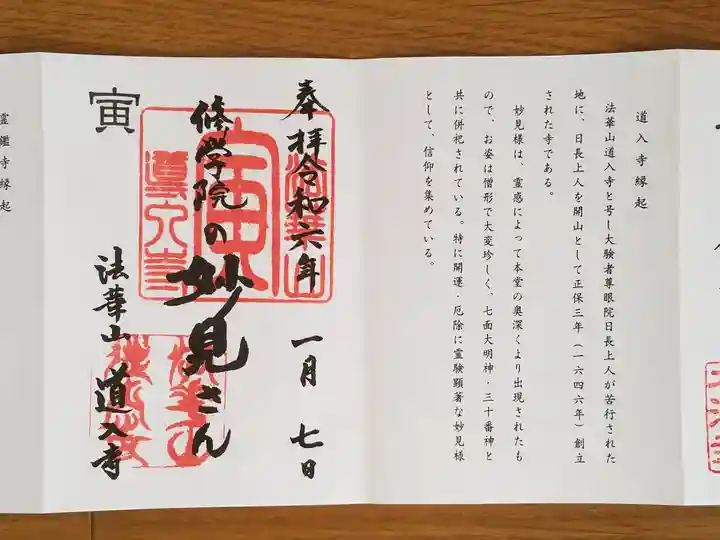 道入寺縁起
法華山道入寺と号し大験者尊眼院日長上人が苦行された
地に、日長上人を開山として正保三年（一六四六年）創立
された寺である。
妙見様は、霊感によって本堂の奥深くより出現されたも
ので、お姿は僧形で大変珍しく、七面大明神・三十番神と
共に併祀されている。特に開運・厄除に霊験顕著な妙見様
として、信仰を集めている。
奉拝令和六年 一月 七日
修学院の妙見さん
寅
法華山 道入寺
霊鑑寺縁起